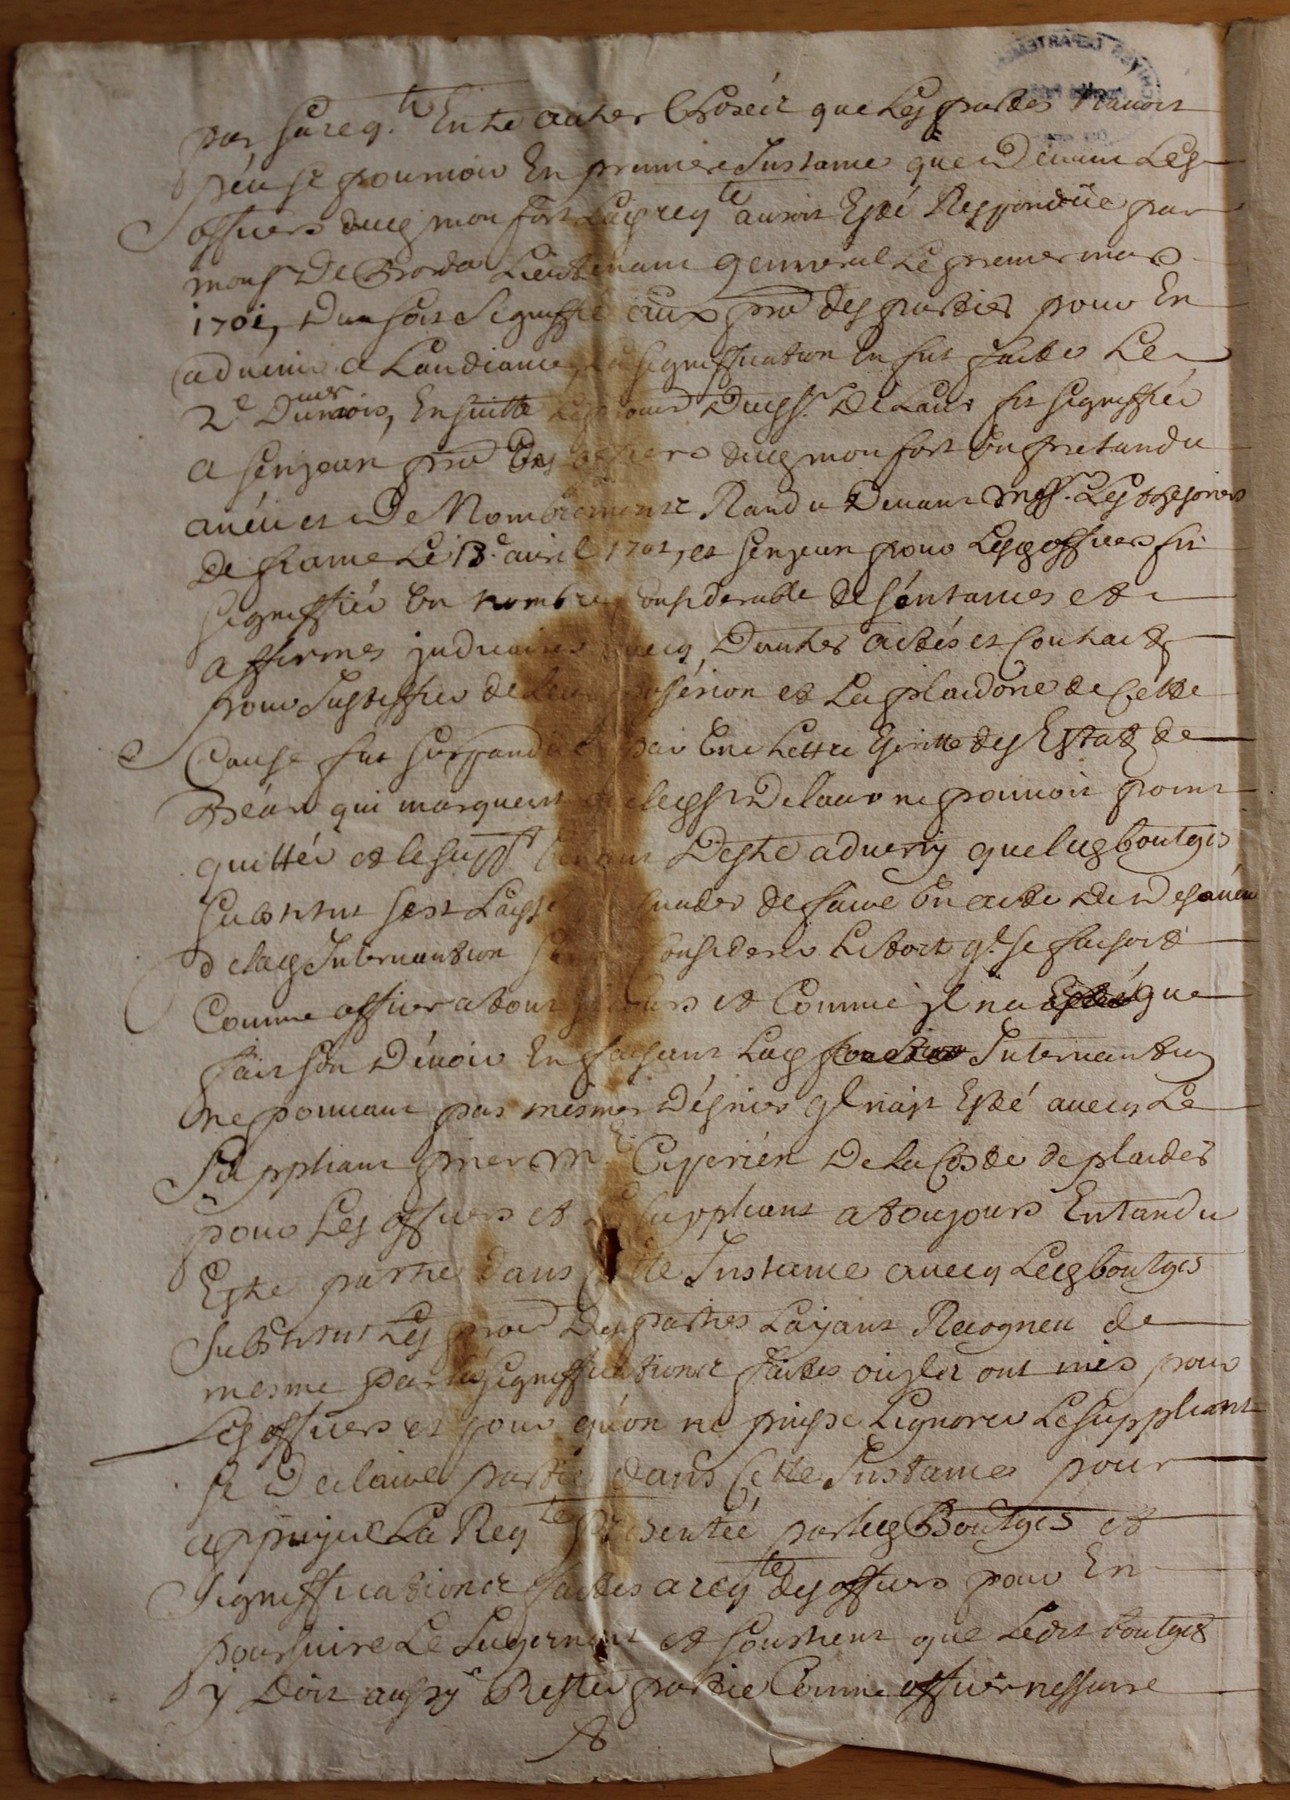 par sa req.te Entre autres Choses que Les parties n'auoit
peu se pouruoir En premiere Instance que Deuant Les
officiers ducq monfort Lacq req.te auroit Esté Respondüe par
mons.r De Borda Lieutenant genneral Le premier mars
1701, Dun soit Signiffié aux pro.rs des parties pour En
aduenir a Laudiance, La signiffication En fut faitte Le
2.e Dumois, Ensuitte Duq s.r De Laur fit signiffier
a senjean pro.r Des officiers ducq monfort Un pretandu
aueu et De Nombrement Randu Deuant mess.rs Les tresoriers
De france Le 13.e auril 1701, et senjean pour Lesq officiers fit
Signiffier Un nombre Considerable de séntances et
affirmes judiciaires auecq Dautres actés et Contracts
pour Justiffier de Leur possesion et La plaidorie de Cette
Cause fut surpandue par Une Lettre Escritte des Estats de
Bearn qui marquent que lecq s.r Delaur ne pouuoit point
quitter et le supp.t Uenant Destre aduerty que lecq boutges
substitut sest Laissé de faire Un acte de Desaueu
delacq Interuantion sans Considerer Le tort q.l se faisoit
Comme officier a tout et Comme jl na que
fait son Déuoir En faisant Lacq Interuantion
ne pouuant pas mesmes Dégnier ql nait Esté auecq Le
Suppliant prier M.e Ciperién De La Coste de plaider
pour Les officiers et Le suppliant a toujours Entandu
Estre partie dans Cette Instance auecq Lecq boutges
Substitut Les pro.rs Des parties Layant Recogneu de
mesme par Les signiffications faittes ou jls ont mis pour
Les officiers et pour qu'on ne puisse Lignorer Le suppliant
se Declaire partie dans Cette Instance pour
appuyer La Req.te presentée par lecq Boutges et
Signiffications faittes a req.te des officiers pour En
poursuire Le Jugement et soustient que Ledit boutges
y Doit aussy Rester partie Comme officier nessaire